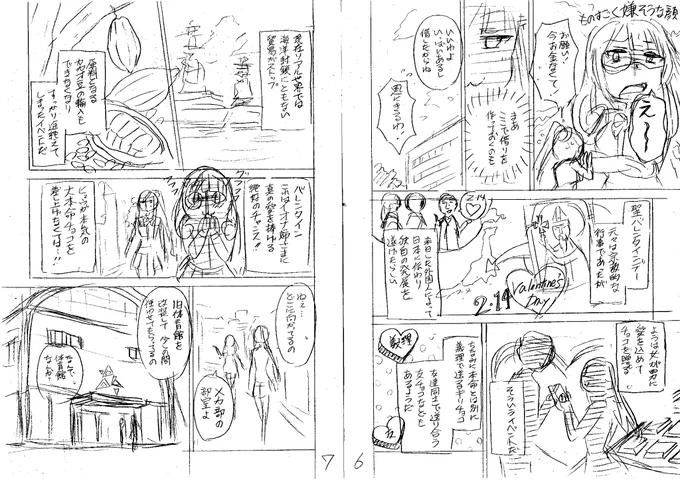 ものすごく嫌そうな顔
お願い！
今お金なくて！
え〜〜
まあ
ここで借りを
作っておくのも
いいわよ
いっぱいあるし
恩にきるわ！
聖バレンタインデー
元々は宗教的な
行事であったが
2.14
来日した外国人によって
日本に伝わり
独自の発展を
遂げたらしい
Valentines
Day!
2.14
ようは女が男に
愛を込めて
チョコを贈る
そういうイベントだ
ちなみに本命とは別に
義理で送るギリチョコ
友達同士で送り合う
友チョコなども
あるようだ
義理
友
6
現在リアル世界では
海洋封鎖にともない
貿易がストップ
原料となる
カカオ豆の輸入も
できなくなり
すっかり途絶えて
しまったイベントだ
バレンタイン
これはイオナ姉さまに
真の愛を捧げる
絶好のチャンス!!
ヒュウガ本気の
大本命チョコを
差し上げなくては…!!
ねえ…
どこに向かってるの
メカ部の
部室よ
旧体育館を
改装して
使わせてもらってるの
なんで
体育館
なのか
7